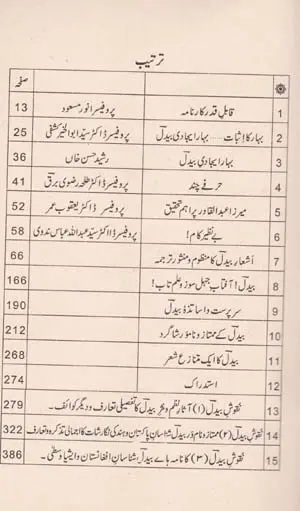 ترتیب
صفحہ
1 قابلِ قدر کارنامہ پروفیسر انور مسعود 13
2 بہار کا اثبات ..... بہار ایجادیِ بیدلؔ پروفیسر ڈاکٹر سیّد ابوالخیر کشفی 25
3 بہار ایجادیِ بیدلؔ رشید حسن خاں 36
4 حرفے چند پروفیسر ڈاکٹر طلحہ رضوی برقؔ 41
5 میرزا عبدالقادر پر اہم تحقیق پروفیسر ڈاکٹر یعقوب عمر 52
6 بے نظیر کام! پروفیسر ڈاکٹر سیّد عبداللہ عباس ندوی 58
7 اَشعارِ بیدلؔ کا منظوم و منثور ترجمہ 66
8 بیدلؔ! آفتابِ جہل سوز و علم تاب! 166
9 سرپرست و اساتذۂ بیدلؔ 190
10 بیدلؔ کے ممتاز و نامور شاگرد 212
11 بیدلؔ کا ایک متنازع شعر 268
12 استدراک 274
13 نقوشِ بیدلؔ (۱) آثارِ نظم و نثرِ بیدلؔ کا تفصیلی تعارف و دیگر کوائف۔ 279
14 نقوشِ بیدلؔ (۲) ممتاز و نامور بیدلؔ شناسانِ پاکستان و ہند کی نگارشات کا اجمالی تذکرہ و تعارف 322
15 نقوشِ بیدلؔ (۳) کارنامہ ہائے بیدلؔ شناسانِ افغانستان و ایشیا وسطیٰ۔ 386